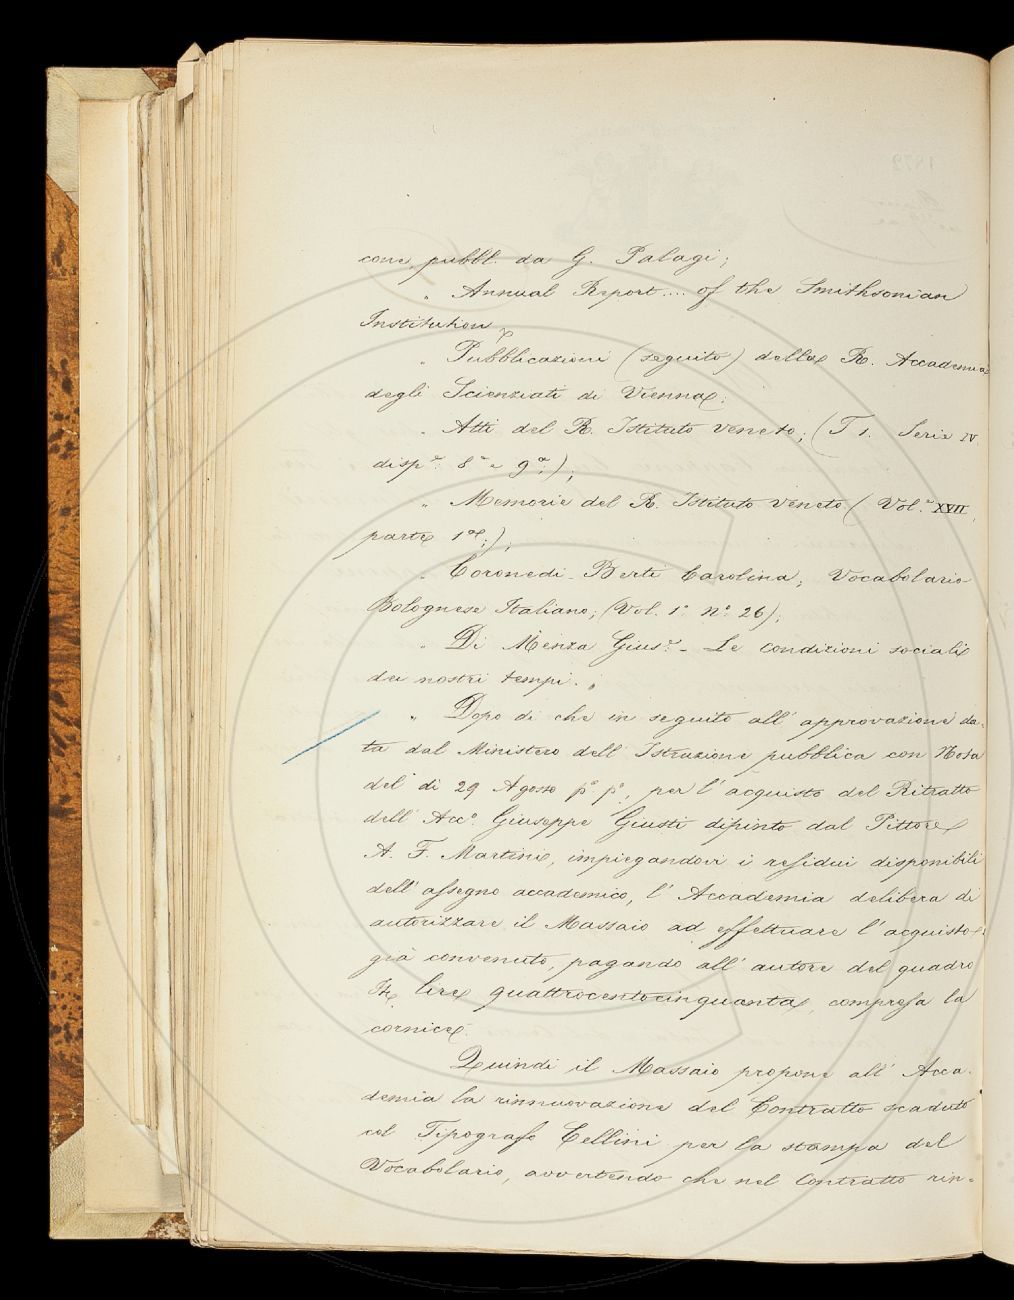 cone, pubbl. da G. Palagi;
" Annual Report .... of the Smithsonian
Institution
" Pubblicazioni (seguito) della R. Accademia
degli Scienziati di Vienna;
" Atti del R. Istituto veneto; (T 1. Serie IV
dispe: 8a e 9a;);
" Memorie del R. Istituto veneto (Vol.e XVII,
parte 1a;);
" Coronedi-Berti Carolina; Vocabolario
Bolognese Italiano; (Vol. 1o no 26);
" Di Menza Gius.e - Le condizioni sociali
dei nostri tempi. "
" Dopo di che in seguito all' approvazione da-
ta dal Ministero dell' Istruzione pubblica con Nota
del dì 29 Agosto po po, per l' acquisto del Ritratto
dell' Acco. Giuseppe Giusti dipinto dal Pittore
A. F. Martini, impiegandovi i residui disponibili
dell' assegno accademico, l' Accademia delibera di
autorizzare il Massaio ad effettuare l' acquisto
già convenuto, pagando all' autore del quadro
It. lire quattrocentocinquanta, compresa la
cornice.
Quindi il Massaio propone all' Acca-
demia la rinnuovazione del Contratto scaduto
col Tipografo Cellini per la stampa del
Vocabolario, avvertendo che nel Contratto rin-